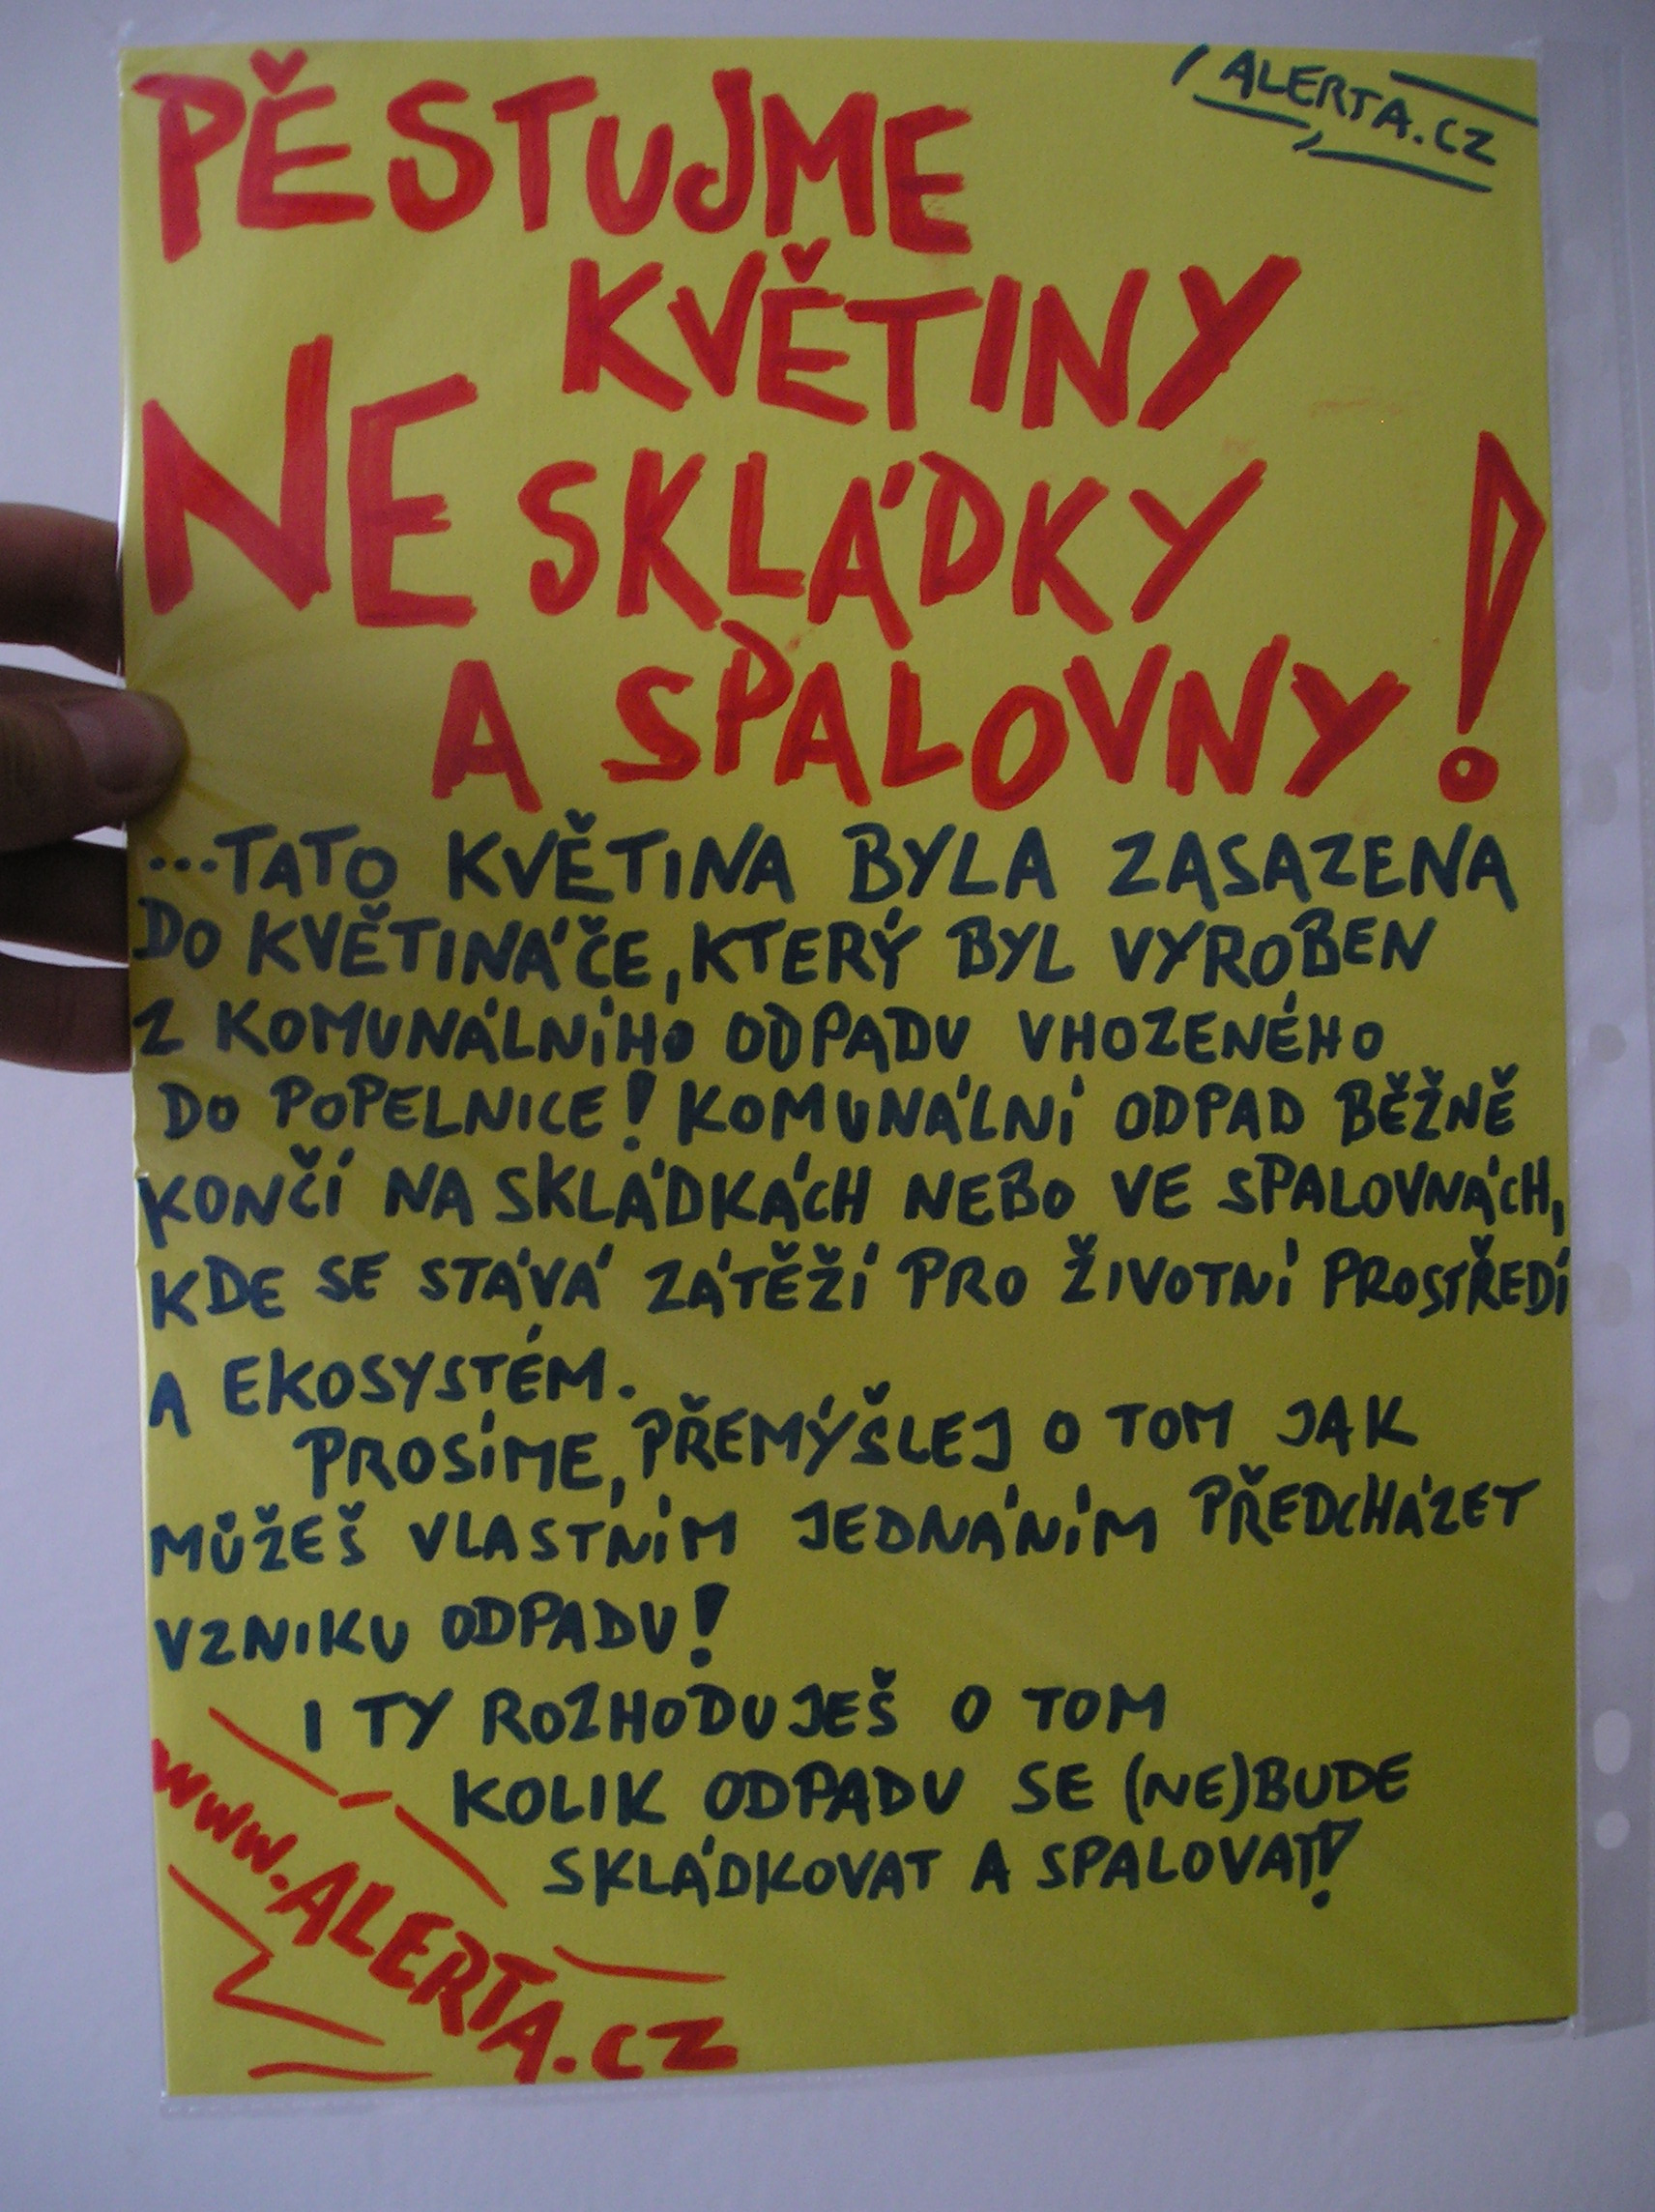 ALERTA.CZ
PĚSTUJME
KVĚTINY
NE SKLÁDKY
A SPALOVNY!
...TATO KVĚTINA BYLA ZASAZENA
DO KVĚTINÁČE, KTERÝ BYL VYROBEN
Z KOMUNÁLNÍHO ODPADU VHOZENÉHO
DO POPELNICE! KOMUNÁLNÍ ODPAD BĚŽNĚ
KONČÍ NA SKLÁDKÁCH NEBO VE SPALOVNÁCH,
KDE SE STÁVÁ ZÁTĚŽÍ PRO ŽIVOTNÍ PROSTŘEDÍ
A EKOSYSTÉM.
PROSÍME, PŘEMÝŠLEJ O TOM JAK
MŮŽEŠ VLASTNÍM JEDNÁNÍM PŘEDCHÁZET
VZNIKU ODPADU!
I TY ROZHODUJEŠ O TOM
KOLIK ODPADU SE (NE)BUDE
SKLÁDKOVAT A SPALOVAT!
WWW.ALERTA.CZ